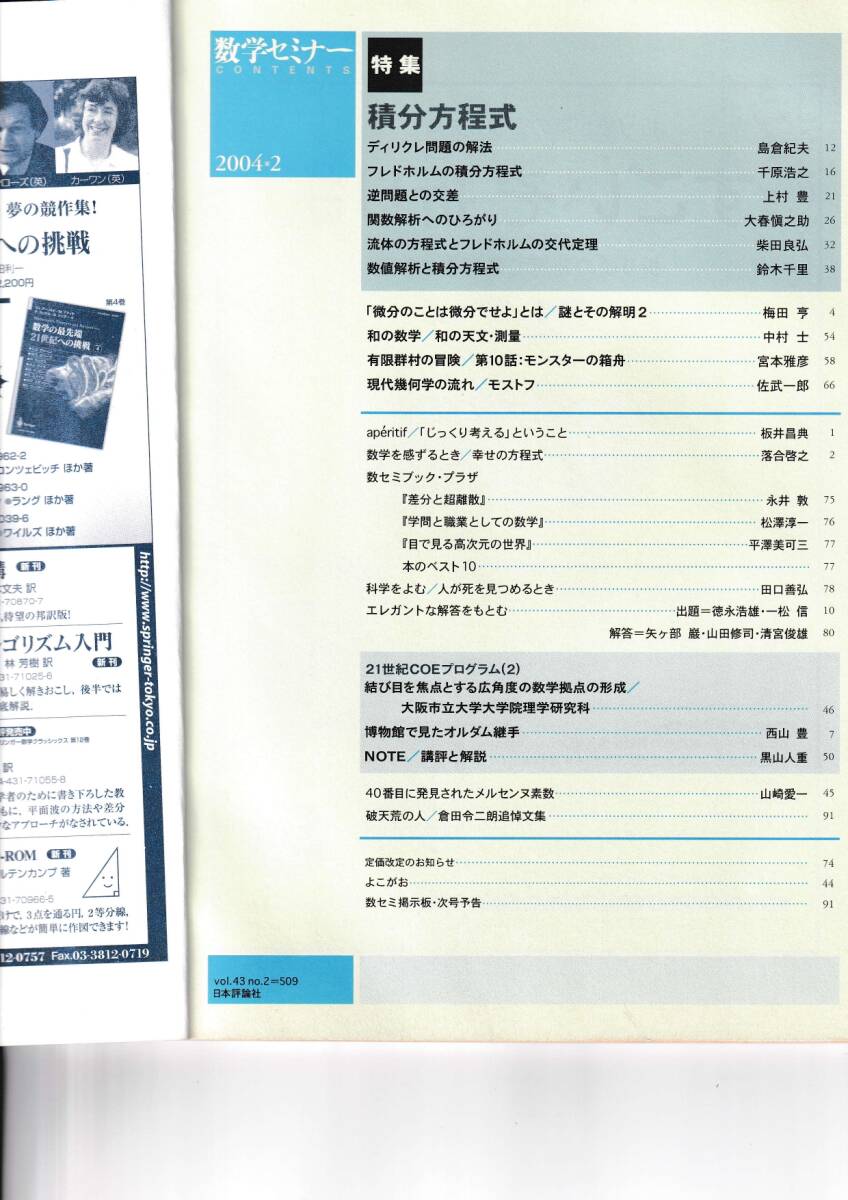 ローズ(英)
カーワン(英)
夢の競作集!
への挑戦
2,200円
第4巻
数学の最先端
21世紀への挑戦
962-2
コンツェビッチ ほか著
963-0
●ラング ほか著
039-6
●ワイルズ ほか著
新刊
文夫 訳
-70870-7
待望の邦訳版!
ゴリズム入門
林 芳樹 訳
新刊
31-71025-6
易しく解きおこし、後半では
底解説.
評発売中
シンガー数学クラシックス 第12巻
訳
4-431-71055-8
学者のために書き下ろした教
もに、平面波の方法や差分
なアプローチがなされている.
-ROM 新刊
ルテンカンプ 著
31-70966-5
けで、3点を通る円, 2等分線,
線などが簡単に作図できます!
12-0757 Fax.03-3812-0719
http://www.springer-tokyo.co.jp
数学セミナー
CONTENTS
2004・2
特集
積分方程式
ディリクレ問題の解法 島倉紀夫 12
フレドホルムの積分方程式 千原浩之 16
逆問題との交差 上村 豊 21
関数解析へのひろがり 大春愼之助 26
流体の方程式とフレドホルムの交代定理 柴田良弘 32
数値解析と積分方程式 鈴木千里 38
「微分のことは微分でせよ」とは/謎とその解明2 梅田 亨 4
和の数学/和の天文・測量 中村 士 54
有限群村の冒険/第10話:モンスターの箱舟 宮本雅彦 58
現代幾何学の流れ/モストフ 佐武一郎 66
apéritif/「じっくり考える」ということ 板井昌典 1
数学を感ずるとき/幸せの方程式 落合啓之 2
数セミブック・プラザ
『差分と超離散』 永井 敦 75
『学問と職業としての数学』 松澤淳一 76
『目で見る高次元の世界』 平澤美可三 77
本のベスト10 77
科学をよむ/人が死を見つめるとき 田口善弘 78
エレガントな解答をもとむ 出題=徳永浩雄・一松 信 10
解答=矢ヶ部 巌・山田修司・清宮俊雄 80
21世紀COEプログラム(2)
結び目を焦点とする広角度の数学拠点の形成/
大阪市立大学大学院理学研究科 46
博物館で見たオルダム継手 西山 豊 7
NOTE/講評と解説 黒山人重 50
40番目に発見されたメルセンヌ素数 山崎愛一 45
破天荒の人/倉田令二朗追悼文集 91
定価改定のお知らせ 74
よこがお 44
数セミ掲示板・次号予告 91
vol.43 no.2=509
日本評論社